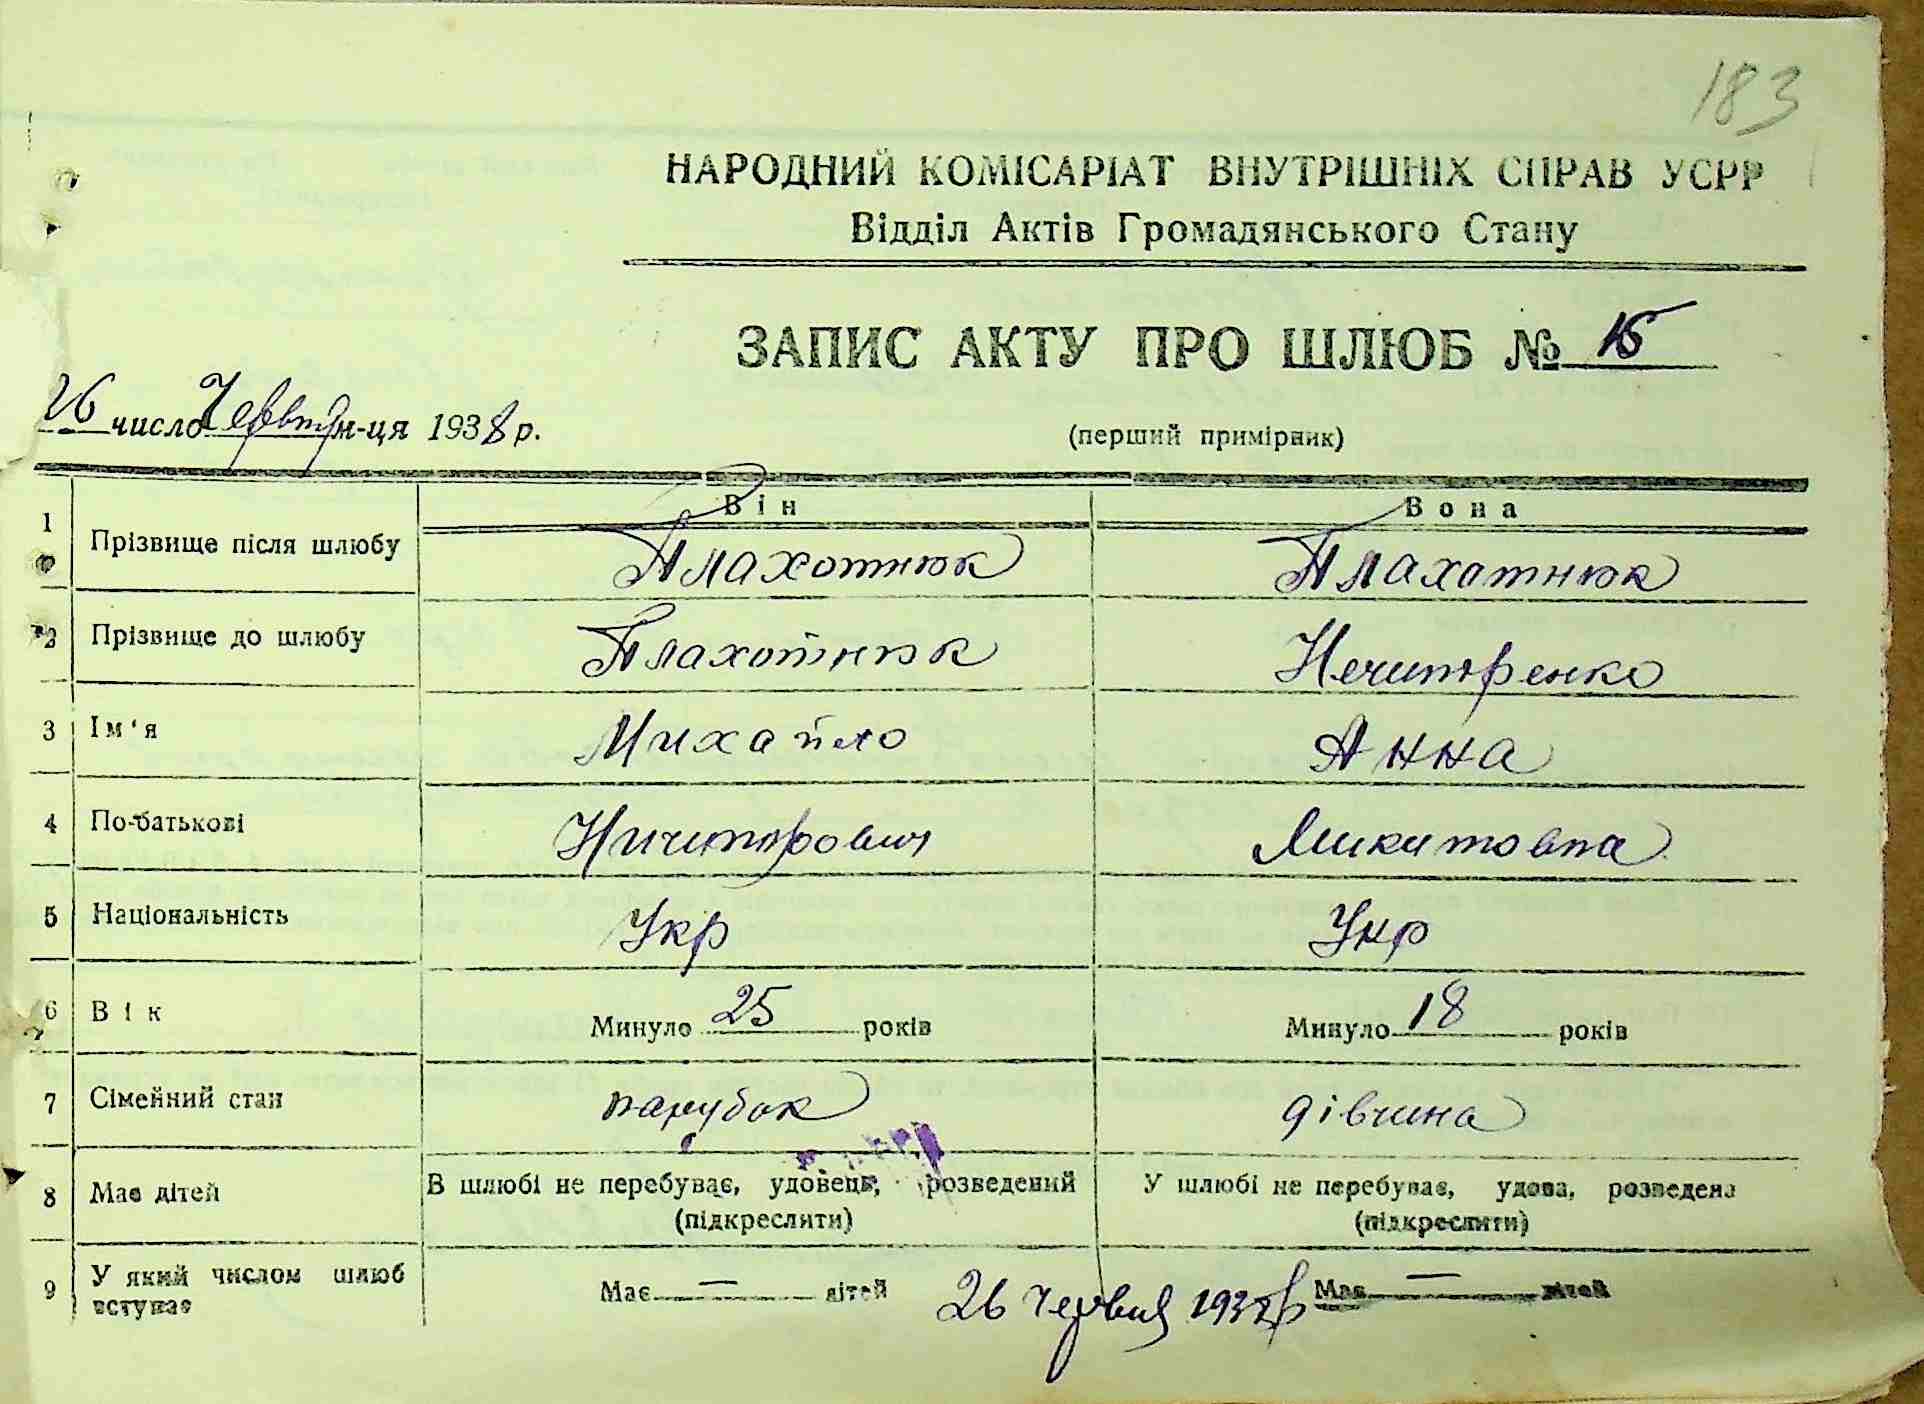 183
НАРОДНИЙ КОМІСАРІАТ ВНУТРІШНІХ СПРАВ УСРР
Відділ Актів Громадянського Стану
ЗАПИС АКТУ ПРО ШЛЮБ № 15
26 число Червня м-ця 1938 р.
(перший примірник)
Він Вона
1 Прізвище після шлюбу Плахотнюк Плахотнюк
2 Прізвище до шлюбу Плахотнюк Нечипоренко
3 Ім'я Михайло Анна
4 По-батькові Ничипорович Микитовна
5 Національність Укр Укр
6 Вік Минуло 25 років Минуло 18 років
7 Сімейний стан парубок дівчина
8 Має дітей В шлюбі не перебуває, удовець, розведений У шлюбі не перебуває, удова, розведена
(підкреслити) (підкреслити)
9 У який числом шлюб вступає Має — дітей 26 Червня 1938 р Має — дітей